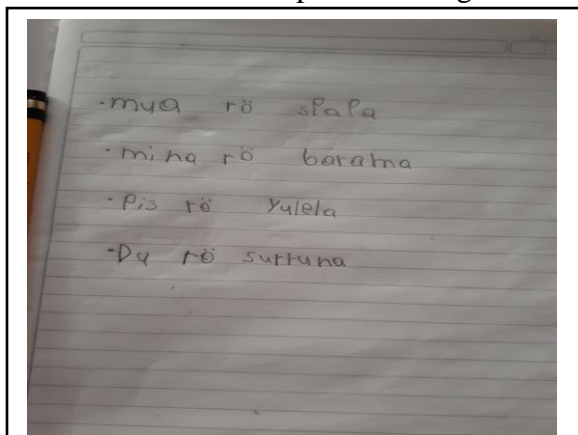 ·mua rö spapa
·mina rö barama
·Pis rö Yulela
·Du rö surtuna